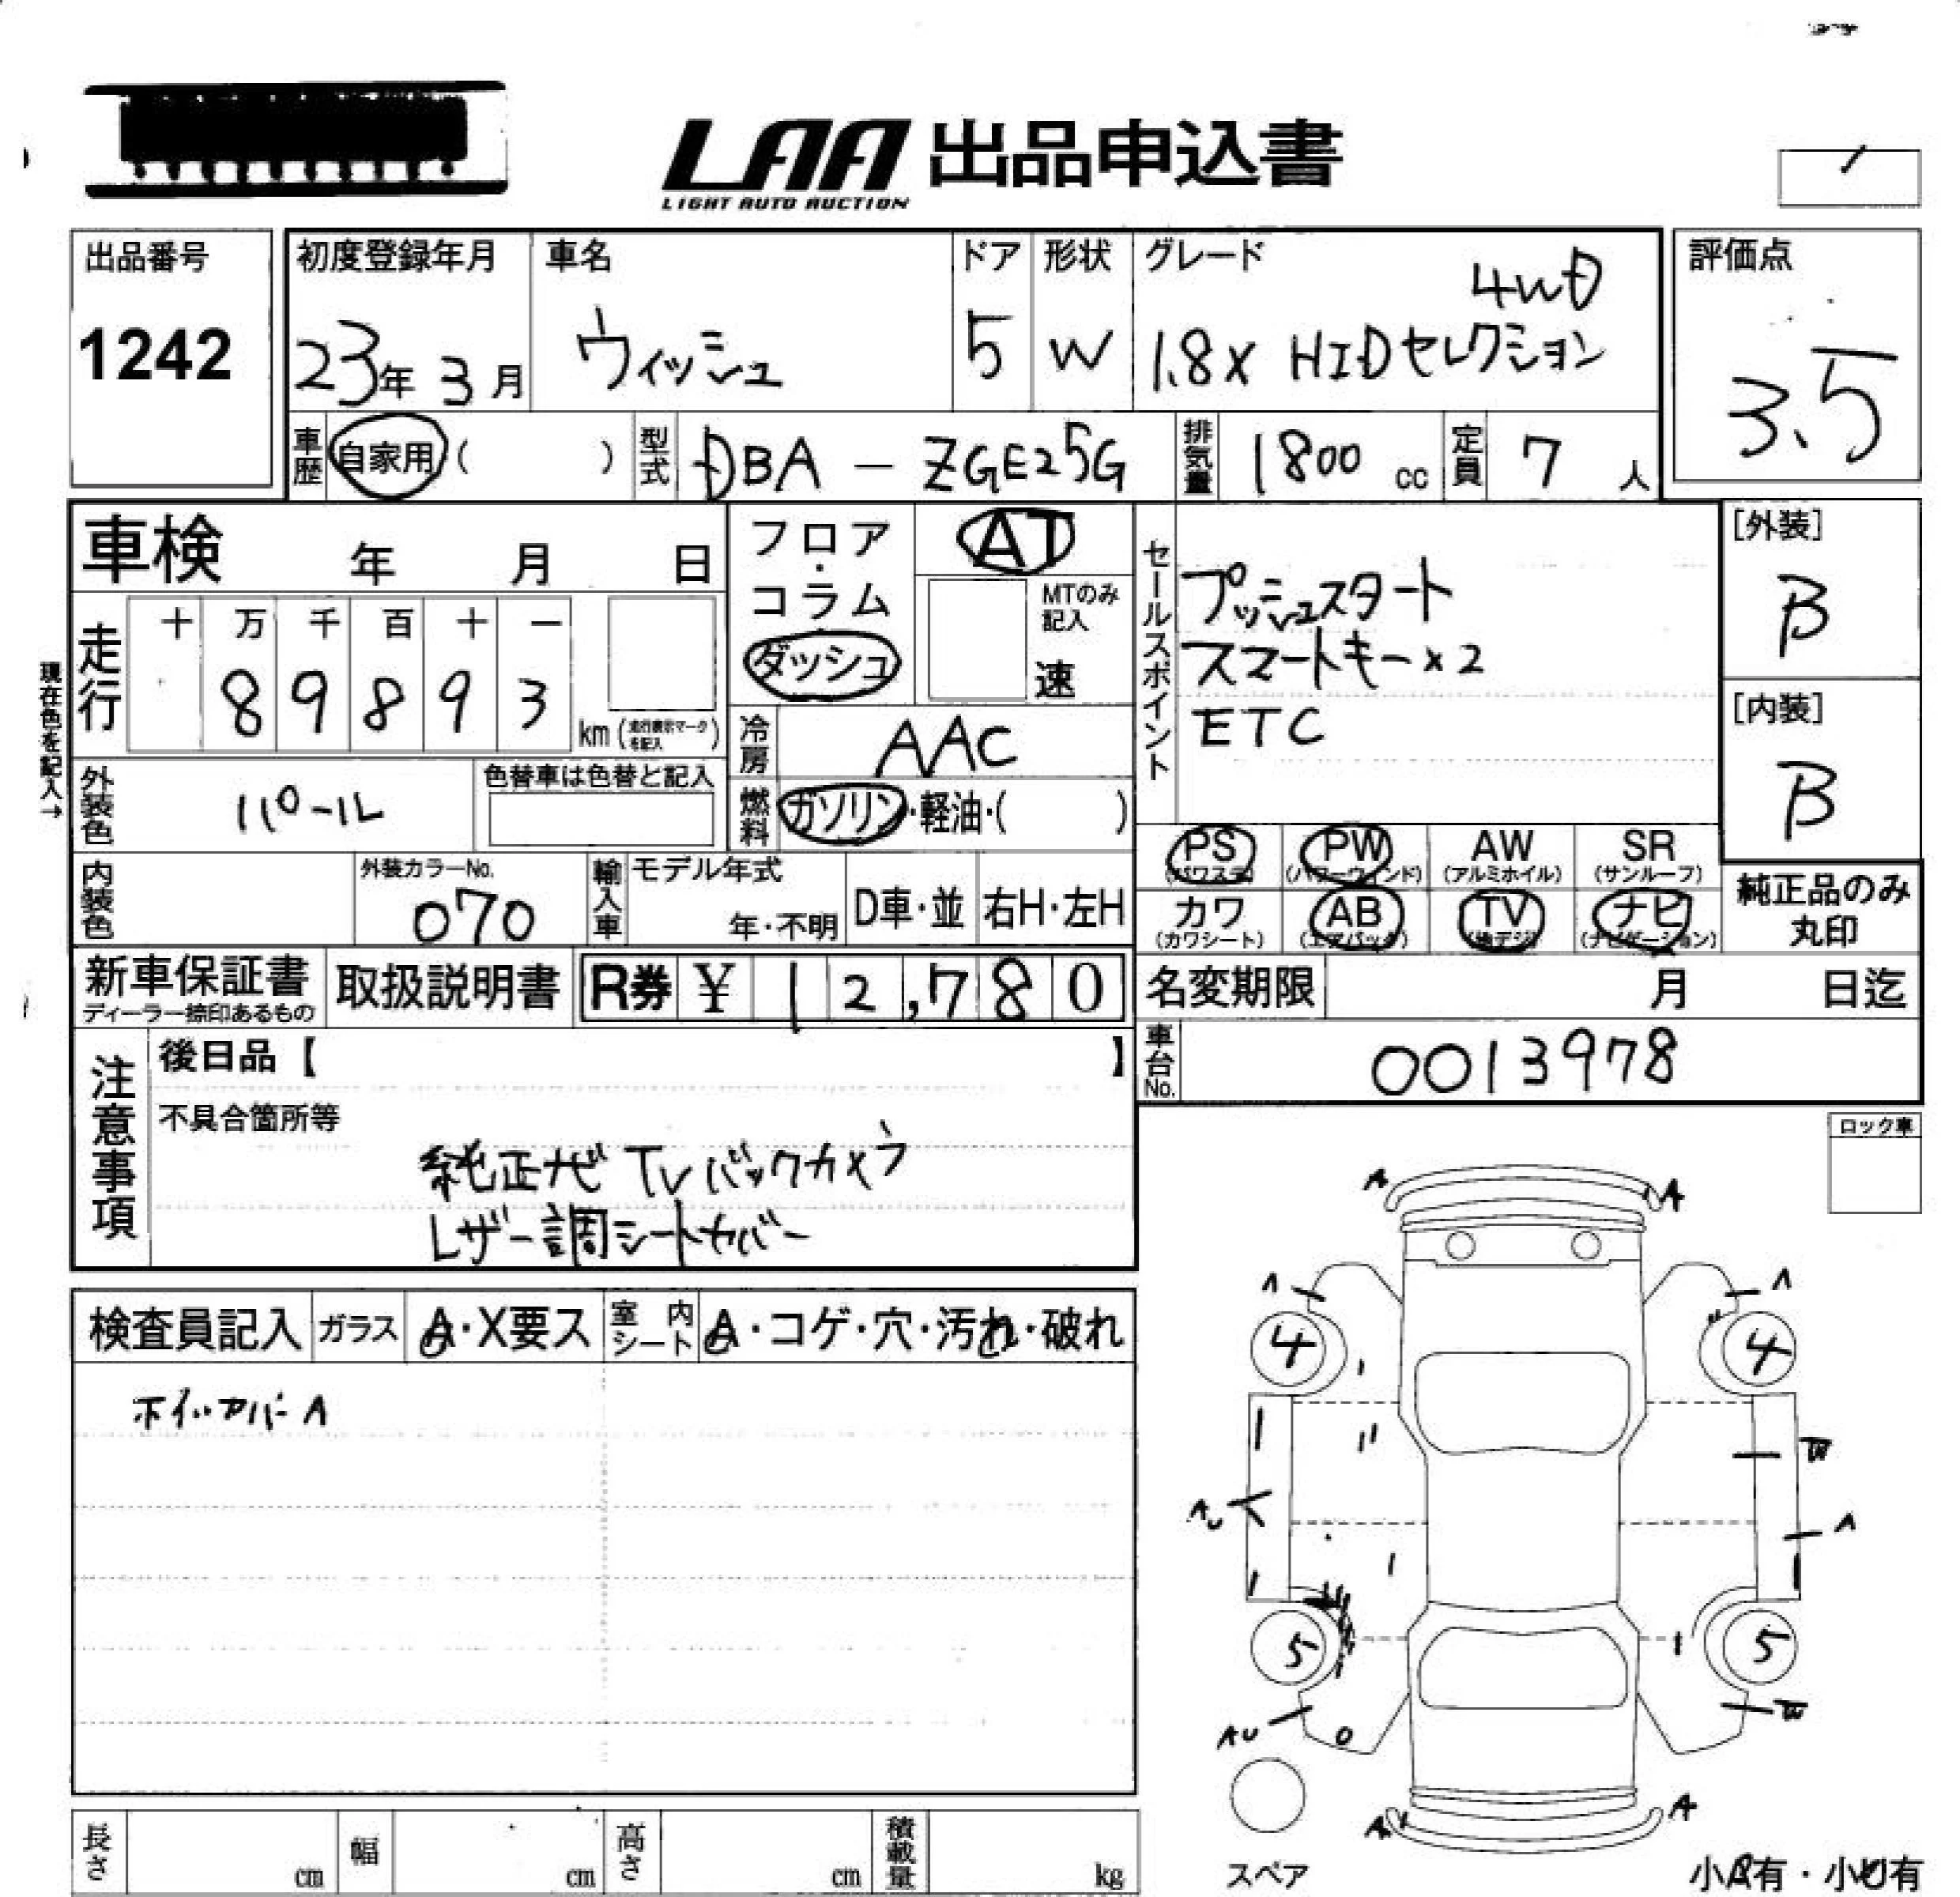 LAA 出品申込書
LIGHT AUTO AUCTION
出品番号
1242
初度登録年月
23年 3月
車名
ウィッシュ
ドア
5
形状
W
グレード
4WD
1.8X HIDセレクション
評価点
3.5
車歴
自家用( )
型式
DBA - ZGE25G
排気量
1800 cc
定員
7 人
車検 年 月 日
フロア・コラム・ダッシュ
AT
MTのみ記入
速
セールスポイント
プッシュスタート
スマートキー×2
ETC
[外装]
B
[内装]
B
現在色を記入→
走行
十 万 千 百 十 一
8 9 8 9 3
km (走行表示マークを記入)
冷房
AAC
外装色
パール
色替車は色替と記入
燃料
ガソリン・軽油・( )
PS (パワステ)
PW (パワーウィンド)
AW (アルミホイル)
SR (サンルーフ)
カワ (カワシート)
AB (エアバック)
TV (地デジ)
ナビ (ナビゲーション)
純正品のみ
丸印
内装色
外装カラーNo.
070
輸入車
モデル年式
年・不明
D車・並
右H・左H
新車保証書
ディーラー捺印あるもの
取扱説明書
R券 ¥ 12,780
名変期限 月 日迄
車台No.
0013978
注意事項
後日品【 】
不具合箇所等
純正ナビ TV バックカメラ
レザー調シートカバー
ロック車
検査員記入
ガラス
A・X要ス
室内シート
A・コゲ・穴・汚れ・破れ
ホイールカバー A
A A
A A
4 4
W
AU A
5 5
AU W
A A
スペア
小A有・小U有
長さ cm
幅 cm
高さ cm
積載量 kg